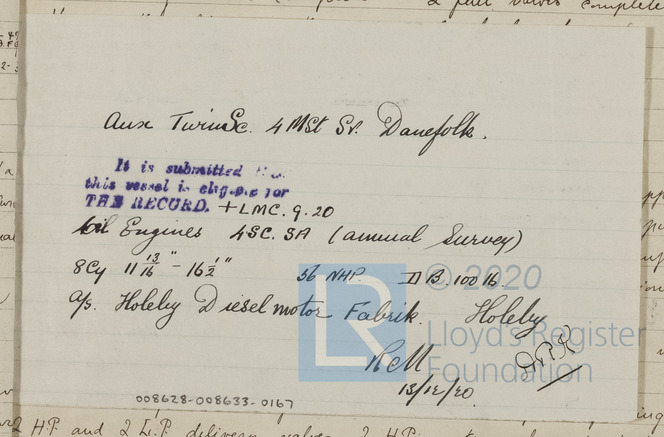 2 full valves complete
Aux TwinSc. 4 Mst Sr. Danefolk.
It is submitted
this vessel is eligible for
THE RECORD. + LMC. 9. 20
Oil Engines 4SC. SA (annual Survey)
8Cy 11 13/16" - 16 1/2" 56 NHP. DB. 100 lb
A/s. Holeby Dieselmotor Fabrik. Holeby
RCM
13/12/20
008628-008633-0167
© 2020
Lloyd's Register
Foundation
H.P. and 2 L.P. delivery valves 2 H.P.